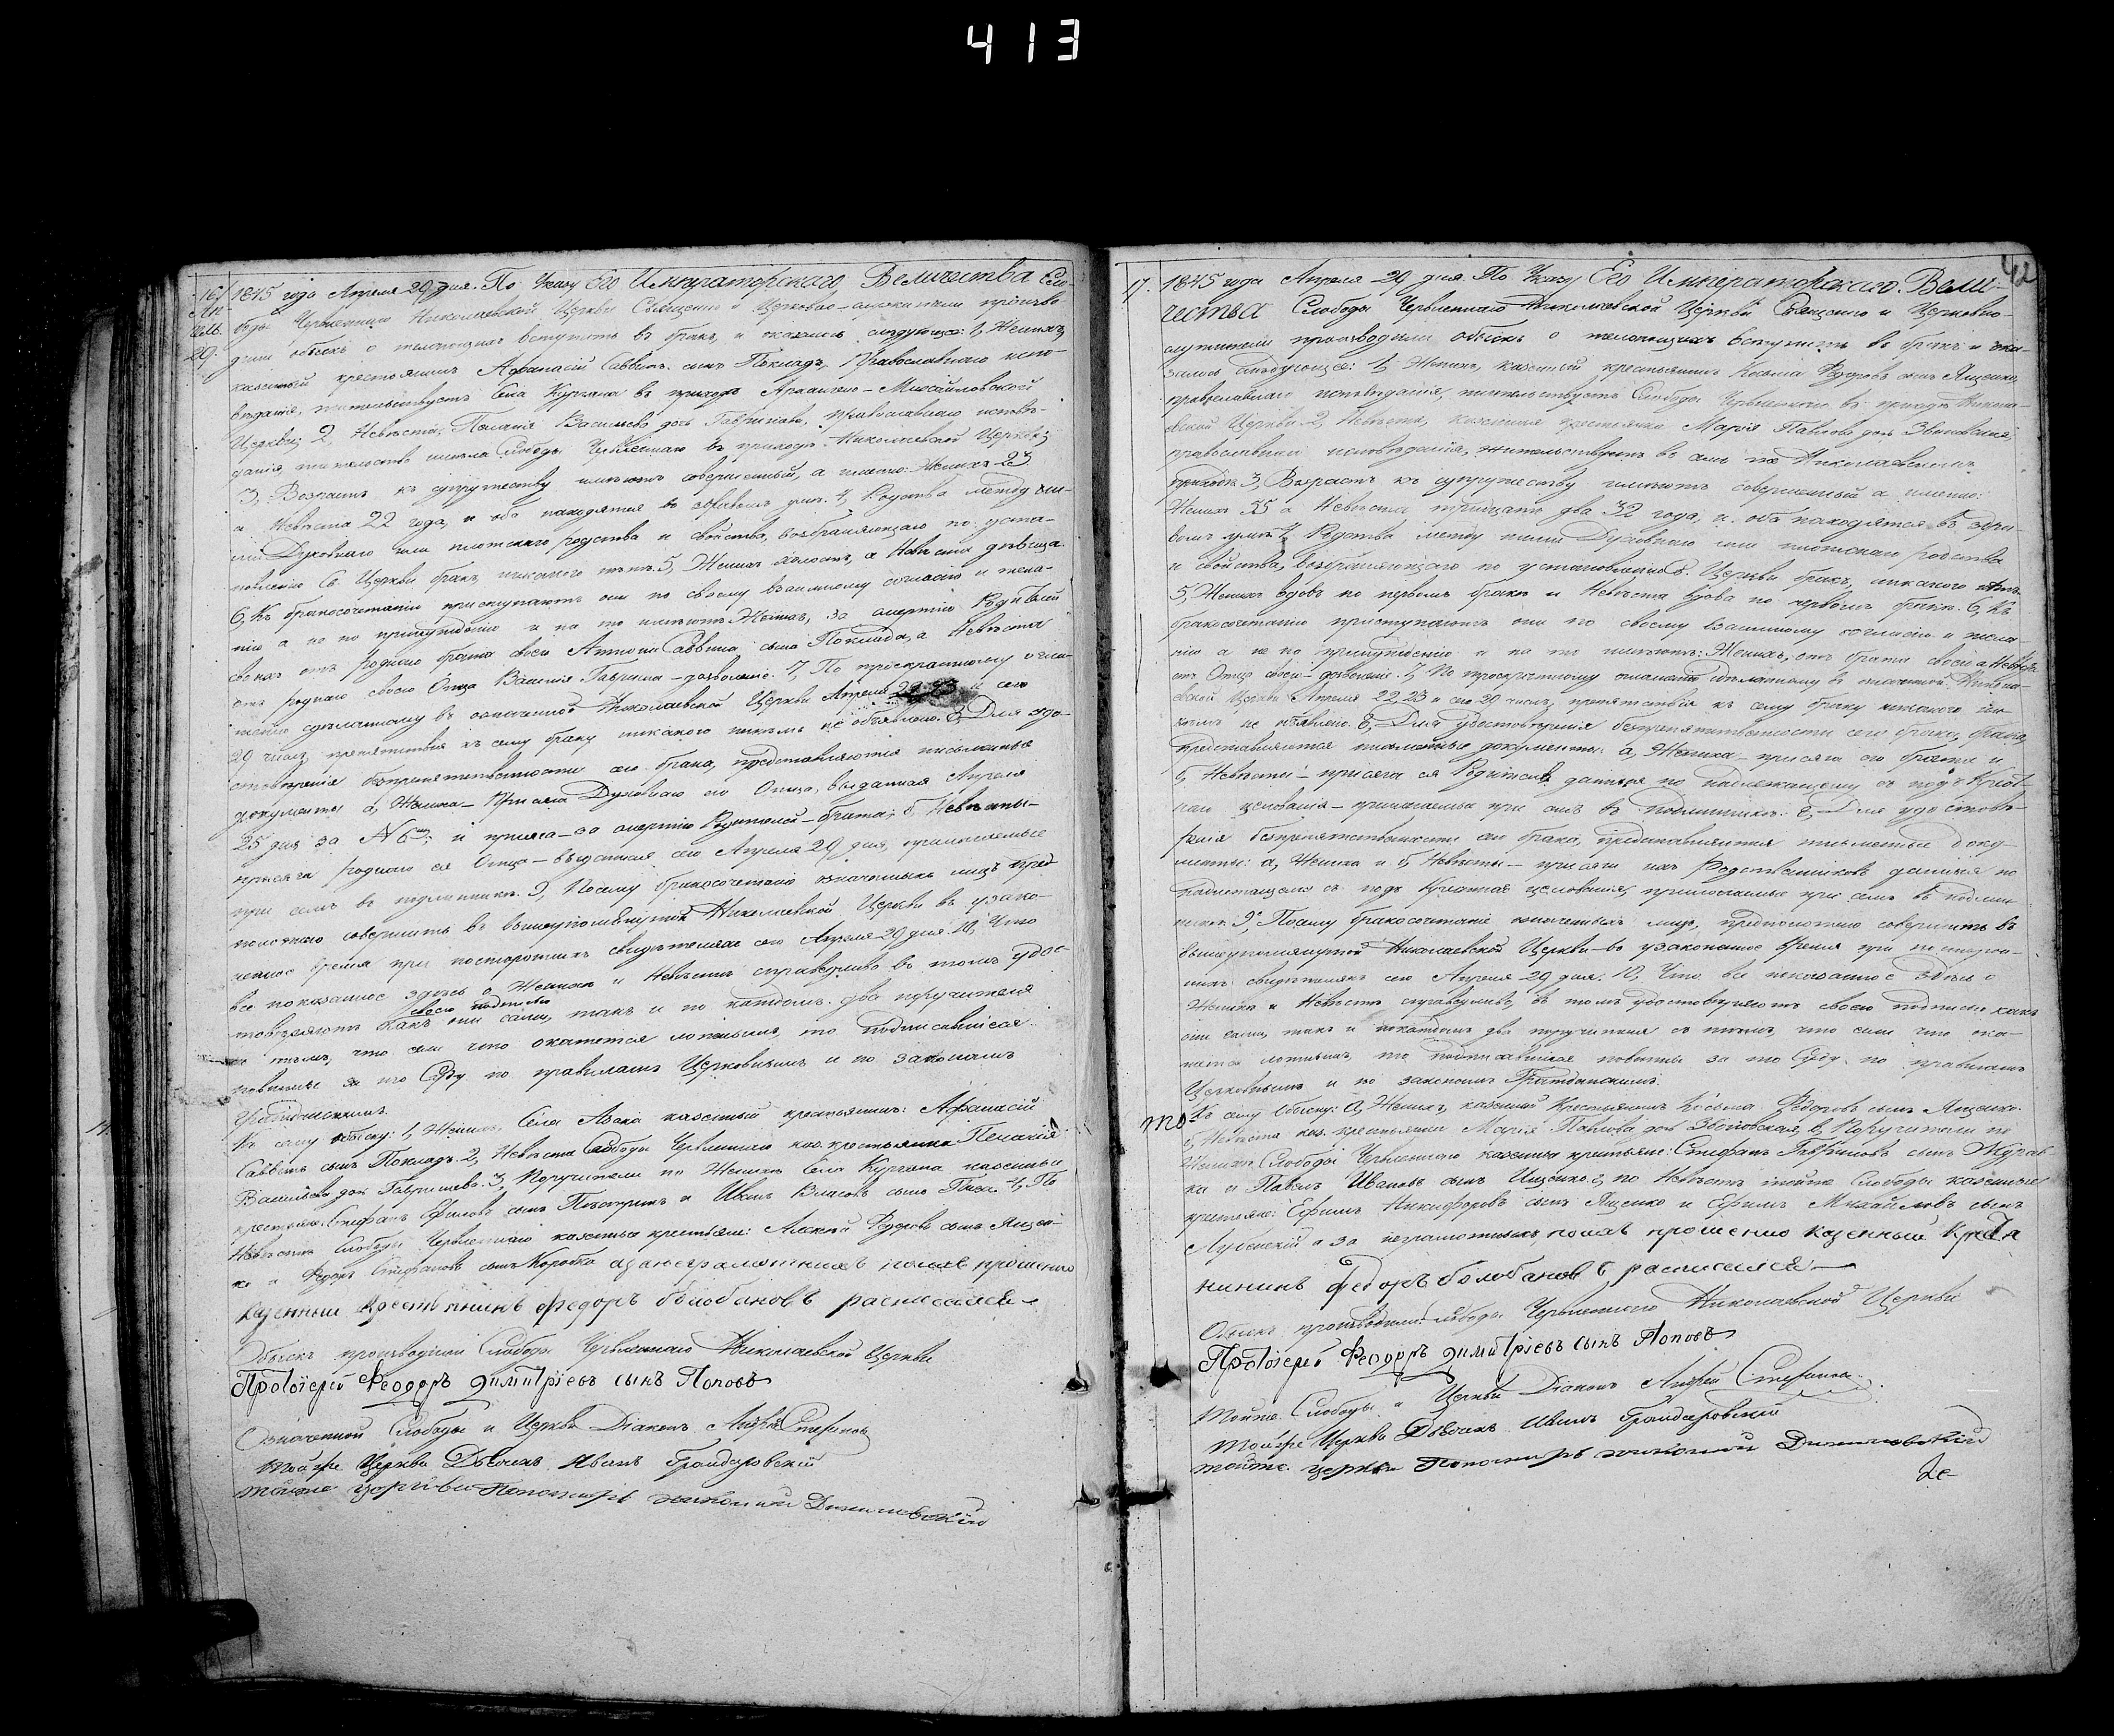 413
16. 1845 года Апреля 29 дня. По Указу Его Императорскаго Величества Сло-
Ап- боды Червленнаго Николаевской Церкви Священно и Церковно-служители произво-
реля
29. дили обыскъ о желающихъ вступить въ бракъ, и оказалось следующее: 1, Женихъ,
казенный крестьянинъ Афанасій Саввинъ сынъ Покладъ, Православнаго испо-
веданія, жительствуетъ Села Кургана въ приходе Архангело-Михайловской
Церкви; 2, Невеста, Пелагія Васильева дочь Гавришева, православнаго испове-
данія, жительство имела Слободы Червленнаго въ приходе Николаевской Церкви;
3, Возрастъ къ супружеству имеютъ совершенный, а именно: Женихъ 23
а Невеста 22 года, и оба находятся въ здравомъ уме. 4, Родства между ни-
ми Духовнаго или плотскаго родства и свойства, возбраняющаго по уста-
новленію Св. Церкви бракъ, никакого нетъ. 5, Женихъ холостъ, а Невеста девица.
6, Къ бракосочетанію приступаютъ они по своему взаимному согласію и жела-
нію а не по принужденію и на то имеютъ: Женихъ, за смертію Родителей
своихъ отъ роднаго брата своего Саввина сына Поклада, а Невеста
отъ роднаго своего Отца Василія Гавриша - дозволеніе. 7, По троекратному оглаше-
нію сделанному въ означенной Николаевской Церкви Апреля 22, 23 и сего
29 числъ, препятствія къ сему браку никакого никемъ не объявлено. 8, Для удо-
стоверенія безпрепятственности сего брака, представляются письменные
документы а, Жениха - Духовнаго его Отца, выданная Апреля
25 дня за № 6м; и присяга - за смертію Родителей - брата; б, Невесты -
присяга роднаго ея Отца - выданная сего Апреля 29 дня, прилагаемые
при семъ въ подлиннике. 9, Посему бракосочетаніе означенныхъ лицъ пред-
положено совершить въ вышеупомянутой Николаевской Церкви въ узако-
ненное время при постороннихъ свидетеляхъ сего Апреля 29 дня. 10, Что
все показанное здесь о Женихе и Невесте справедливо въ томъ удос-
своею подписью
товеряютъ какъ они сами, такъ и по каждомъ два поручителя
съ темъ, что если что окажется ложнымъ, то подписавшіеся
повинны за то Суду по правиламъ Церковнымъ и по законамъ
Гражданскимъ.
Къ сему обыску: 1, Женихъ, Села казенный крестьянинъ: Афанасій
Саввинъ сынъ Покладъ. 2, Невеста Слободы Червленнаго каз. крестьянка Пелагія
Васильева дочь Гавришева. 3, Поручители по Женихе Села Кургана казенные
крестьяне: Стефанъ сынъ и Иванъ Власовъ сынъ 4, По
Невесте Слободы Червленнаго казенные крестьяне: Алексей Федоровъ сынъ Яцен-
ко и Федоръ Стефановъ сынъ Коробка азанеграмотнихъ поихъ прошению
казенный крестянинъ Федоръ болобановъ расписался
Обыскъ производили Слободы Червленнаго Николаевской Церкви
Протоіерей Феодоръ Димитріевъ сынъ Поповъ
Означенной Слободы и Церкви Діаконъ Андрей Стефановъ
тойже Церкви Дьячекъ Иванъ Грайдаровскій
тойже церкви Пономарь
17. 1845 года Апреля 29 дня. По Указу Его Императорскаго Вели-
42
чества Слободы Червленнаго Николаевской Церкви Священно и Церковно-
служители производили обыскъ о желающихъ вступить въ бракъ и ока-
залось следующее: 1, Женихъ, казенный крестьянинъ Косьма Федоровъ сынъ Яценко,
православнаго исповеданія, жительствуетъ Слободы Червленнаго въ приходе Никола-
евской Церкви. 2, Невеста, казенная крестьянка Марія Павлова дочь
православнаго исповеданія, жительствуетъ въ томъ же Николаевскомъ
приходе. 3, Возрастъ къ супружеству имеютъ совершенный а именно:
Женихъ 35 а Невеста тридцать два 32 года, и оба находятся въ здра-
вомъ уме. 4, Родства между ними Духовнаго или плотскаго родства
и свойства, возбраняющаго по установленію Св. Церкви бракъ, никакого нетъ.
5, Женихъ вдовъ по первомъ браке и Невеста вдова по первомъ браке. 6, Къ
бракосочетанію приступаютъ они по своему взаимному согласію и жела-
нію а не по принужденію и на то имеютъ: Женихъ, отъ брата своего а Невеста
отъ Отца своего - дозволеніе. 7, По троекратному оглашенію сделанному въ означенной Никола-
евской Церкви Апреля 22, 23 и сего 29 числъ, препятствія къ сему браку никакого ни-
кемъ не объявлено. 8, Для удостоверенія безпрепятственности сего брака,
представляются письменные документы: а, Жениха - присяга его брата и
б, Невесты - присяга ея Родителя данная по надлежащему съ подъ Крест-
нымъ целованія - приложенныя при семъ въ подлиннике. 8, Для удостове-
ренія безпрепятственности сего брака, представляются письменные доку-
менты: а, Жениха и б, Невесты - присяги ихъ Родственниковъ данныя по
надлежащему съ подъ Крестнаго целованія, приложенные при семъ въ подлин-
нике. 9, Посему бракосочетаніе означенныхъ лицъ, предположено совершить въ
вышеупомянутой Николаевской Церкви въ узаконенное время при посторон-
нихъ свидетеляхъ сего Апреля 29 дня. 10, Что все показанное здесь о
Женихе и Невесте справедливо, въ томъ удостоверяютъ своею подписью какъ
они сами, такъ и по каждомъ два поручителя съ темъ, что если что ока-
жется ложнымъ, то подписавшіеся повинны за то Суду по правиламъ
Церковнымъ и по законамъ Гражданскимъ.
Къ сему обыску: а, Женихъ, казенный Крестьянинъ Косьма Федоровъ сынъ Яценко.
б, Невеста каз. крестьянка Марія Павлова дочь в, Поручители по
Женихе Слободы Червленнаго казенные крестьяне: Стефанъ Гавриловъ сынъ Журав-
ка и Павелъ Ивановъ сынъ по Невесте тойже Слободы казенные
крестьяне: Ефимъ Никифоровъ сынъ Яценко и Ефимъ Михайловъ сынъ
а за неграмотныхъ поихъ прошению казенный
Федоръ болобановъ расписался
Обыскъ производили Слободы Червленнаго Николаевской Церкви
Протоіерей Феодоръ Димитріевъ сынъ Поповъ
Тойже Слободы и Церкви Діаконъ Андрей Стефановъ
тойже Церкви Дьячекъ Иванъ Грайдаровскій
тойже церкви Пономарь